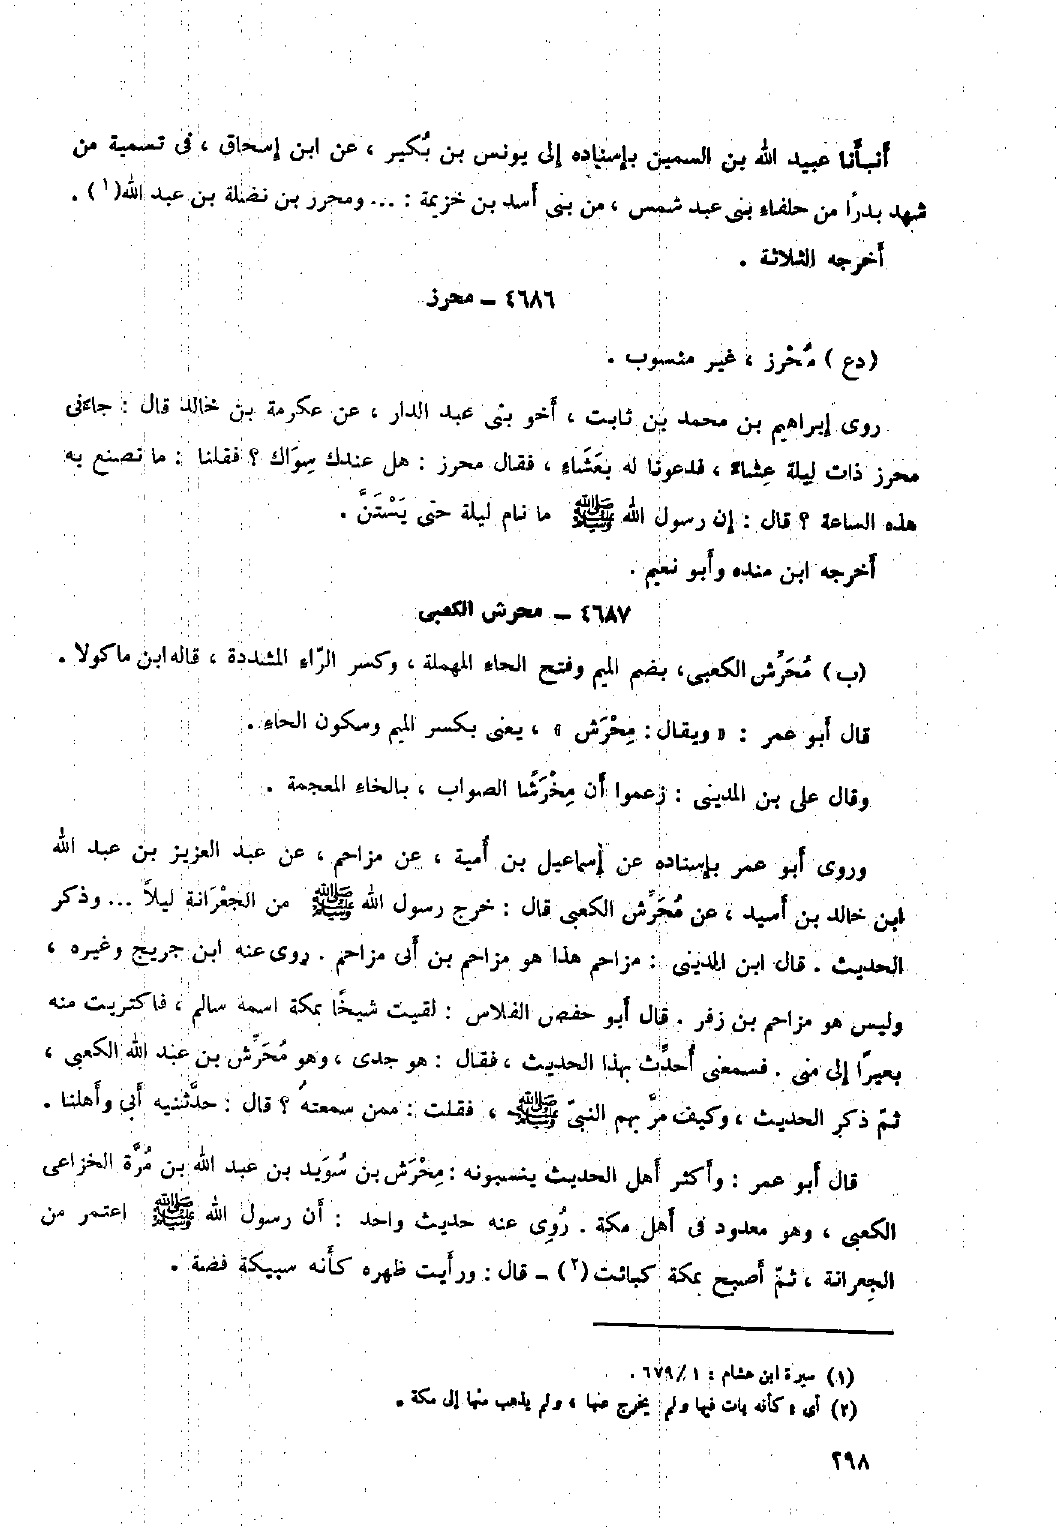 أنبأنا عبيد الله بن السمين بإسناده إلى يونس بن بُكير ، عن ابن إسحاق ، فى تسمية من
شهد بدرًا من حلفاء بنى عبد شمس ، من بنى أسد بن خزيمة : ... ومحرر بن نضلة بن عبد الله(١) .
أخرجه الثلاثة .
٤٦٨٦ - محرز
(دع) مُحْرز ، غير منسوب .
روى إبراهيم بن محمد بن ثابت ، أخو بنى عبد الدار ، عن عكرمة بن خالد قال : جاءنى
محرز ذات ليلة عِشاءً ، فدعونا له بعَشَاءِ ، فقال محرز : هل عندك سِوَاك ؟ فقلنا : ما تصنع به
هذه الساعة ؟ قال : إن رسول الله ﷺ ما نام ليلة حتى يَسْتَنَّ .
أخرجه ابن منده وأبو نعيم .
٤٦٨٧ - محرش الكعبى
(ب) مُحَرِّش الكعبى، بضم الميم وفتح الحاء المهملة ، وكسر الرّاء المشددة ، قاله ابن ماكولا .
قال أبو عمر : « ويقال : مِحْرَش » ، يعنى بكسر الميم وسكون الحاء .
وقال على بن المدينى : زعموا أن مِخْرَشًا الصواب ، بالخاء المعجمة .
وروى أبو عمر بإسناده عن إسماعيل بن أُمية ، عن مزاحم ، عن عبد العزيز بن عبد الله
ابن خالد بن أسيد ، عن مُحَرِّش الكعبى قال : خرج رسول الله ﷺ من الجعْرَانة ليلاً ... وذكر
الحديث . قال ابن المدينى : مزاحم هذا هو مزاحم بن أبى مزاحم . روى عنه ابن جريج وغيره ،
وليس هو مزاحم بن زفر . قال أبو حفص الفلاس : لقيت شيخًا بمكة اسمه سالم ، فاكتريت منه
بعيرًا إلى منى . فسمعنى أُحدِّث بهذا الحديث ، فقال : هو جدى ، وهو مُحَرِّش بن عبد الله الكعبى ،
ثمّ ذكر الحديث ، وكيف مرَّ بهم النبىّ ﷺ ، فقلت : ممن سمعتهُ ؟ قال : حدَّثنيه أبى وأهلنا .
قال أبو عمر : وأكثر أهل الحديث ينسبونه : مِحْرَش بن سُوَيد بن عبد الله بن مُرَّة الخزاعى
الكعبى ، وهو معدود فى أهل مكة . رُوِى عنه حديث واحد : أن رسول الله ﷺ اعتمر من
الجعرانة ، ثمّ أصبح بمكة كبائت(٢) - قال : ورأيت ظهره كأنه سبيكة فضة .
(١) سيرة ابن هشام : ١ / ٦٧٩ .
(٢) أى : كأنه بات فيها ولم يخرج عنها ، ولم يذهب منها إلى مكة .
٢٩٨